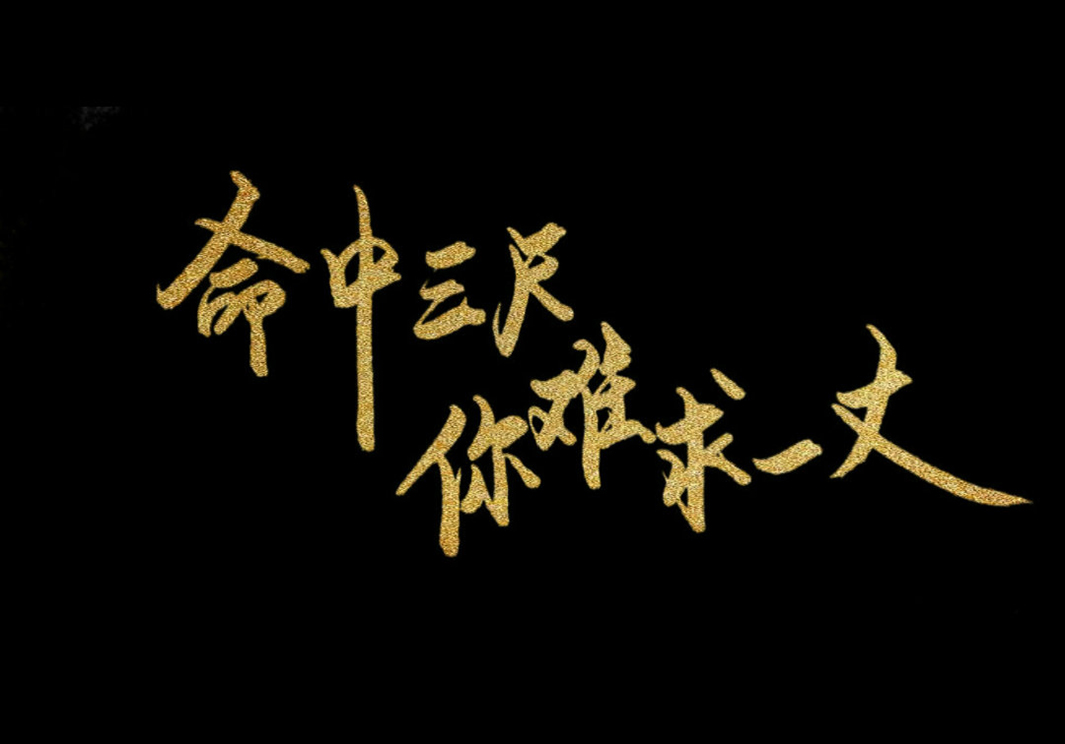 命中三尺
你难求一丈